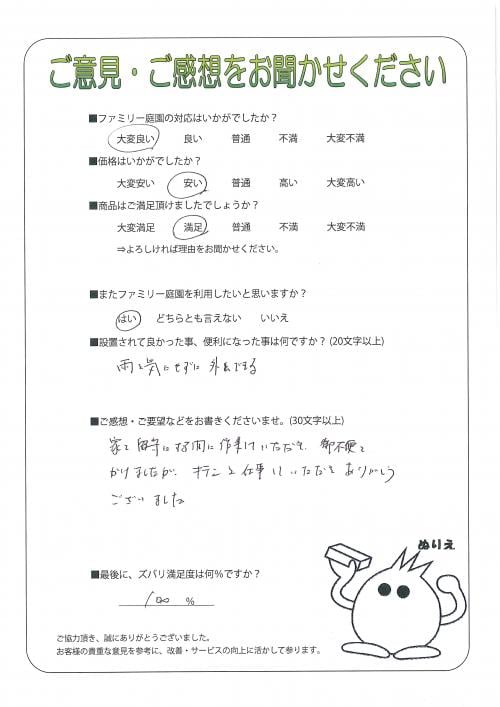 ご意見・ご感想をお聞かせください
■ファミリー庭園の対応はいかがでしたか？
大変良い 良い 普通 不満 大変不満
■価格はいかがでしたか？
大変安い 安い 普通 高い 大変高い
■商品はご満足頂けましたでしょうか？
大変満足 満足 普通 不満 大変不満
⇒よろしければ理由をお聞かせください。
■またファミリー庭園を利用したいと思いますか？
はい どちらとも言えない いいえ
■設置されて良かった事、便利になった事は何ですか？(20文字以上)
雨を気にせずに 外出できる
■ご感想・ご要望などをお書きくださいませ。(30文字以上)
家を留守にする間に作業していただき、御不便を
かけましたが、キチンと仕事していただきありがとう
ございました
ぬりえ
■最後に、ズバリ満足度は何％ですか？
100 ％
ご協力頂き、誠にありがとうございました。
お客様の貴重な意見を参考に、改善・サービスの向上に活かして参ります。